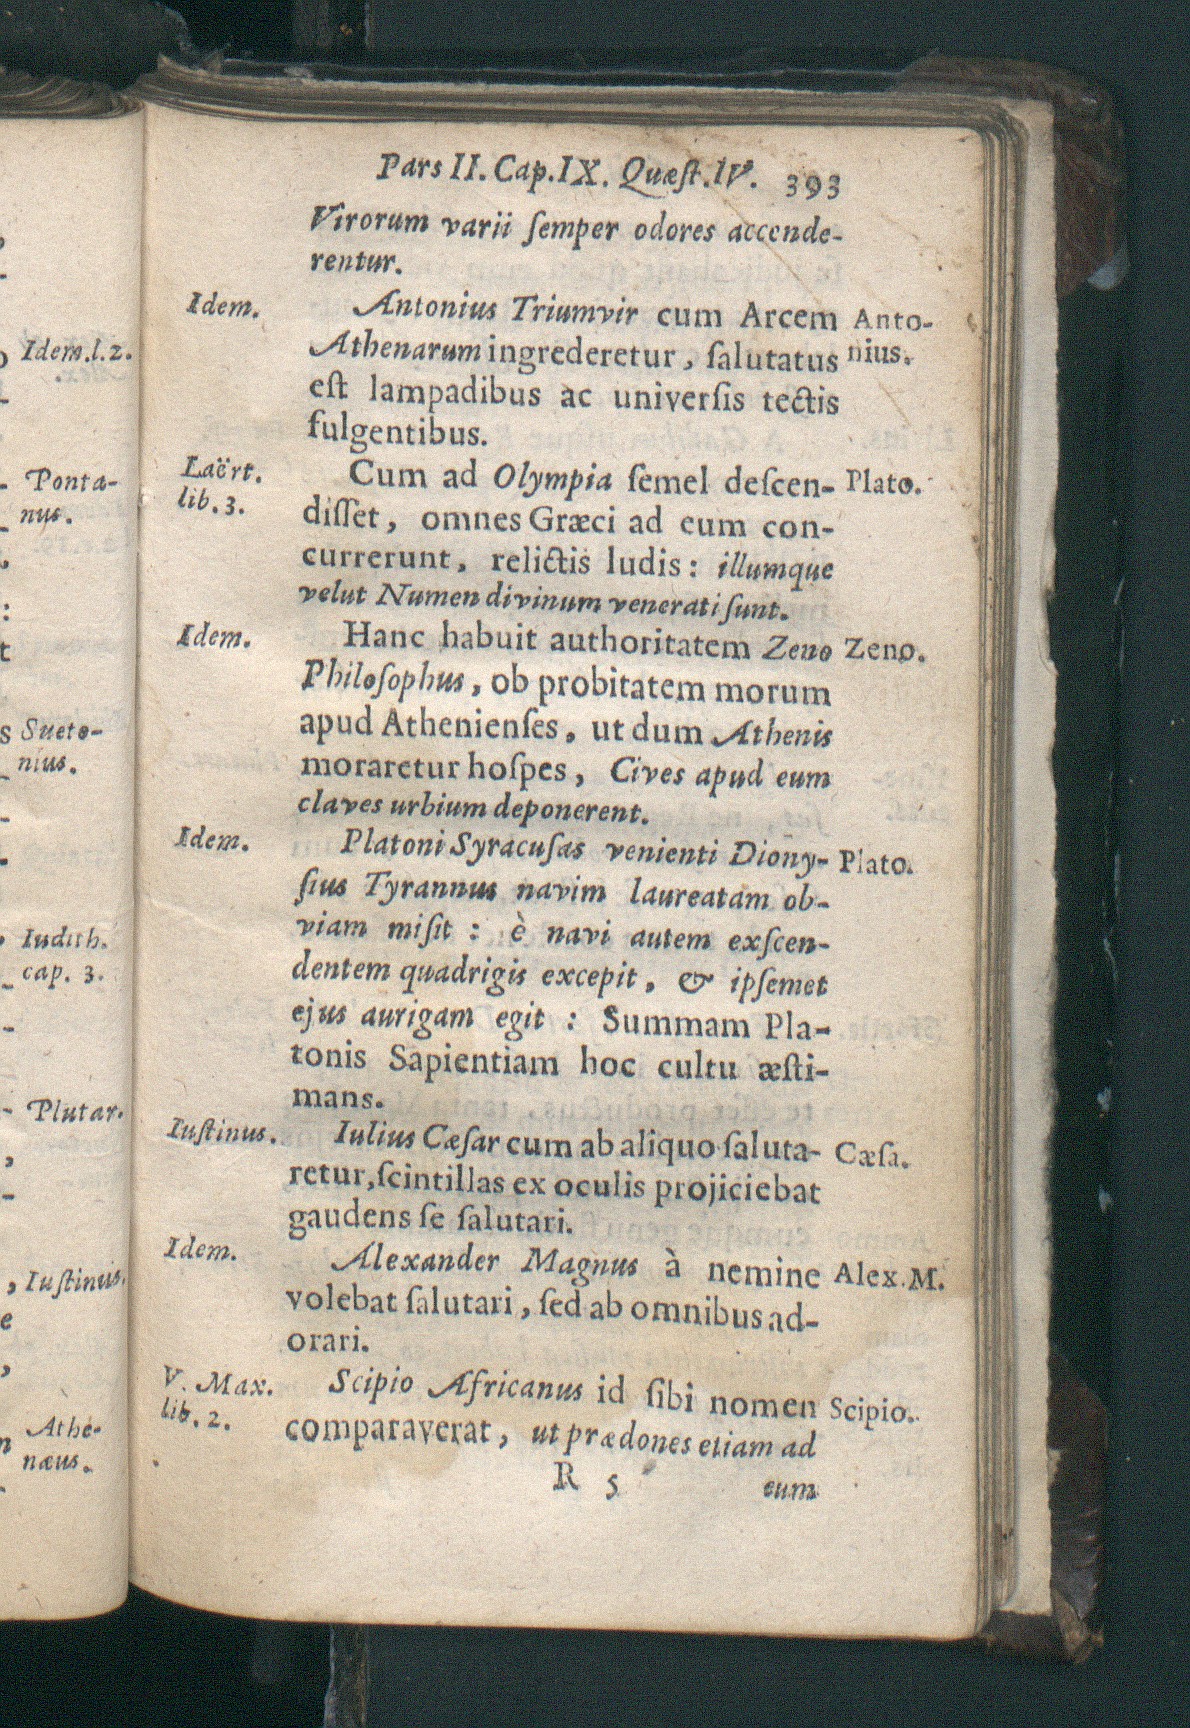 Idem.l.2.
Ponta-
nus.
Sueto-
nius.
Iudith.
cap. 3.
Plutar.
Iustinus.
Athe-
næus.
Pars II. Cap. IX. Quæſt. IV. 393
Virorum varii ſemper odores accende-
rentur.
Idem. Antonius Triumvir cum Arcem Anto-
Athenarum ingrederetur, ſalutatus nius.
eſt lampadibus ac univerſis tectis
fulgentibus.
Laërt. Cum ad Olympia ſemel deſcen- Plato.
lib. 3. diſſet, omnes Græci ad eum con-
currerunt, relictis ludis: illumque
velut Numen divinum venerati ſunt.
Idem. Hanc habuit authoritatem Zeno Zeno.
Philoſophus, ob probitatem morum
apud Athenienſes, ut dum Athenis
moraretur hoſpes, Cives apud eum
claves urbium deponerent.
Idem. Platoni Syracuſas venienti Diony- Plato.
ſius Tyrannus navim laureatam ob-
viam miſit : è navi autem exſcen-
dentem quadrigis excepit, & ipſemet
ejus aurigam egit : Summam Pla-
tonis Sapientiam hoc cultu æſti-
mans.
Iuſtinus. Iulius Cæſar cum ab aliquo ſaluta- Cæſa.
retur, ſcintillas ex oculis projiciebat
gaudens ſe ſalutari.
Idem. Alexander Magnus à nemine Alex. M.
volebat ſalutari, ſed ab omnibus ad-
orari.
V. Max. Scipio Africanus id ſibi nomen Scipio.
lib. 2. comparaverat, ut prædones etiam ad
R 5 eum